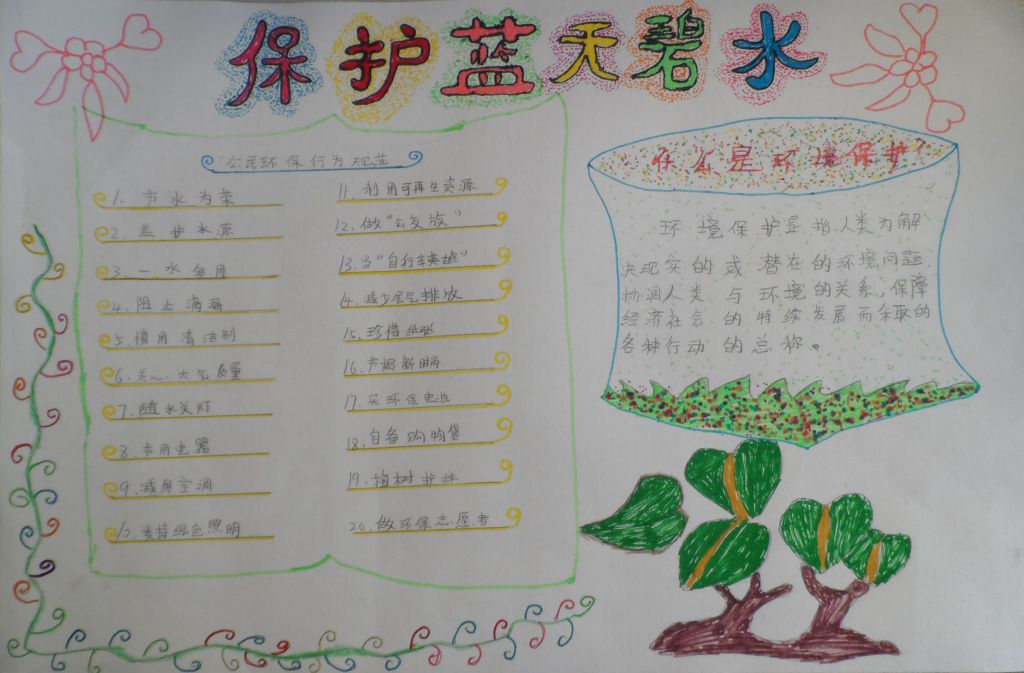 保护蓝天碧水
公民环保行为规范
1. 节水为荣
2. 监护水源
3. 一水多用
4. 阻止滴漏
5. 慎用清洁剂
6. 关心大气质量
7. 随水关灯
8. 节用电器
9. 减用空调
10. 支持绿色照明
11. 利用可再生资源
12. 做“公交族”
13. 当“自行车英雄”
14. 减少尾气排放
15. 珍惜纸张
16. 节粮新时尚
17. 买环保电池
18. 自备购物袋
19. 植树护林
20. 做环保志愿者
什么是环境保护?
环境保护是指人类为解
决现实的或潜在的环境问题
协调人类与环境的关系,保障
经济社会的持续发展而采取的
各种行动的总称。